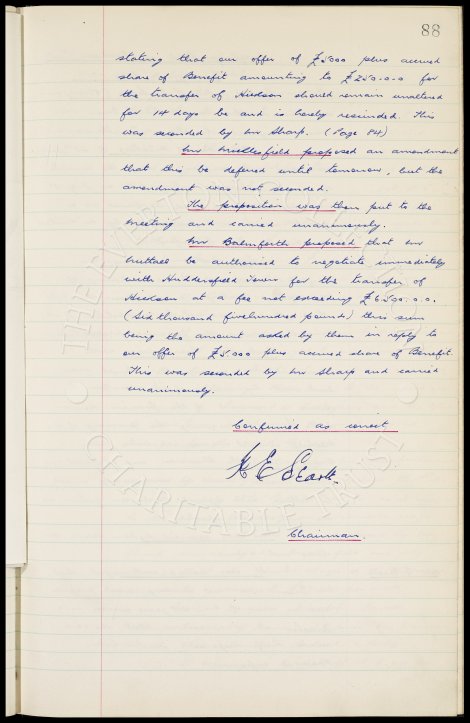 88
stating that our offer of £5000 plus accrued
share of Benefit amounting to £250.0.0 for
the transfer of Hickson should remain unaltered
for 14 days be and is hereby rescinded. This
was seconded by Mr Sharp. (Page 84)
Mr Micklesfield proposed an amendment
that this be deferred until tomorrow, but the
amendment was not seconded.
The proposition was then put to the
Meeting and carried unanimously.
Mr Balmforth proposed that Mr
Nuttall be authorised to negotiate immediately
with Huddersfield Town for the transfer of
Hickson at a fee not exceeding £6,500.0.0.
(Six thousand fivehundred pounds) this sum
being the amount asked by them in reply to
our offer of £5,000 plus accrued share of Benefit.
This was seconded by Mr Sharp and carried
unanimously.
Confirmed as correct
Chairman.
THE EVERTON
CHARITABLE TRUST